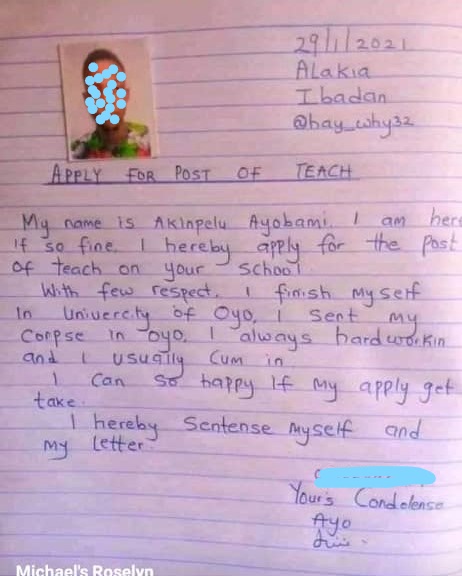 29/1/2021
Alakia
Ibadan
@hay_why32
APPLY FOR POST OF TEACH
My name is Akinpelu Ayobami. I am here
If so fine. I hereby apply for the post
of teach on your school
With few respect. I finish myself
In Univercity of Oyo, I sent my
Corpse in oyo, I always hardworkin
and I usually cum in.
I can so happy If my apply get
take.
I hereby Sentense myself and
my letter.
Yours Condolense
Ayo
Michael's Roselyn